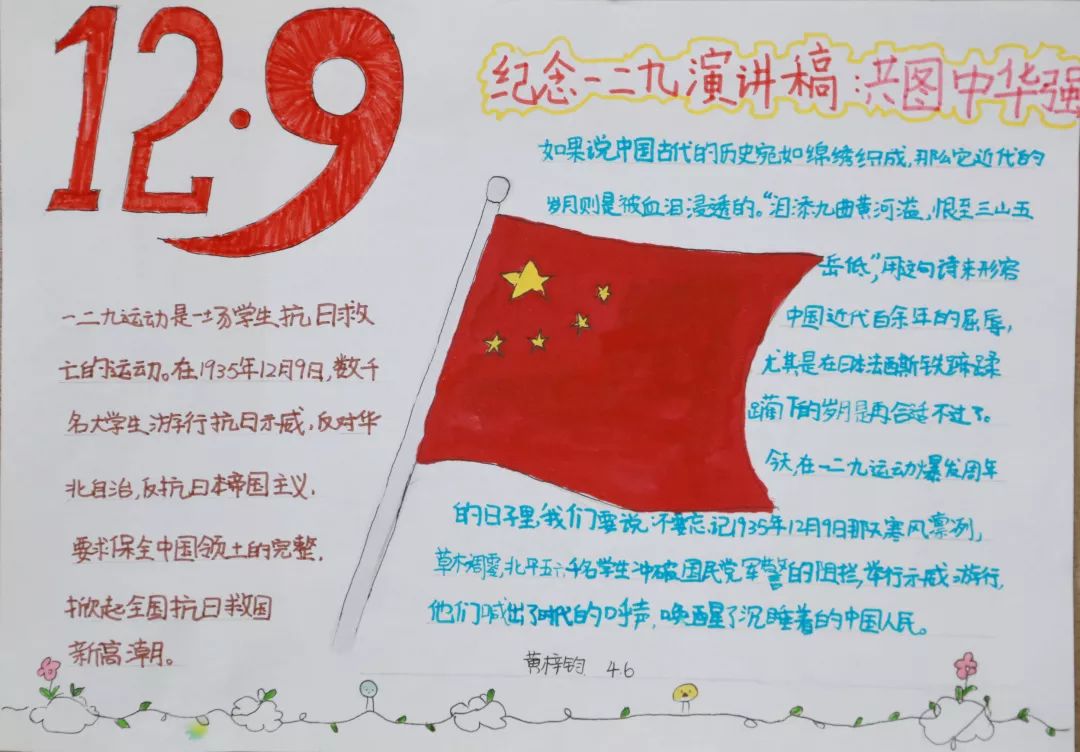 12·9
纪念一二九演讲稿:洪图中华强
如果说中国古代的历史宛如绵绣织成,那么它近代的
岁月则是被血泪浸透的。“泪添九曲黄河溢,恨至三山五
岳低”,用这句诗来形容
中国近代百余年的屈辱,
尤其是在日本法西斯铁蹄蹂
躏下的岁月是再合适不过了。
今天,在一二九运动爆发周年
的日子里,我们要说,不要忘记1935年12月9日那天寒风凛冽,
草木凋零,北平五六千名学生冲破国民党军警的阻拦,举行示威游行,
他们喊出了时代的呼声,唤醒了沉睡着的中国人民。
一二九运动是一场学生抗日救
亡的运动。在1935年12月9日,数千
名大学生游行抗日示威,反对华
北自治,反抗日本帝国主义,
要求保全中国领土的完整,
掀起全国抗日救国
新高潮。
黄梓钧 4.6